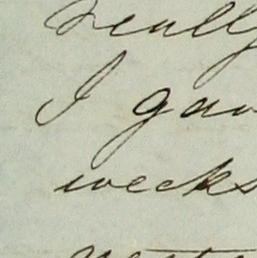 really
I gav
weeks